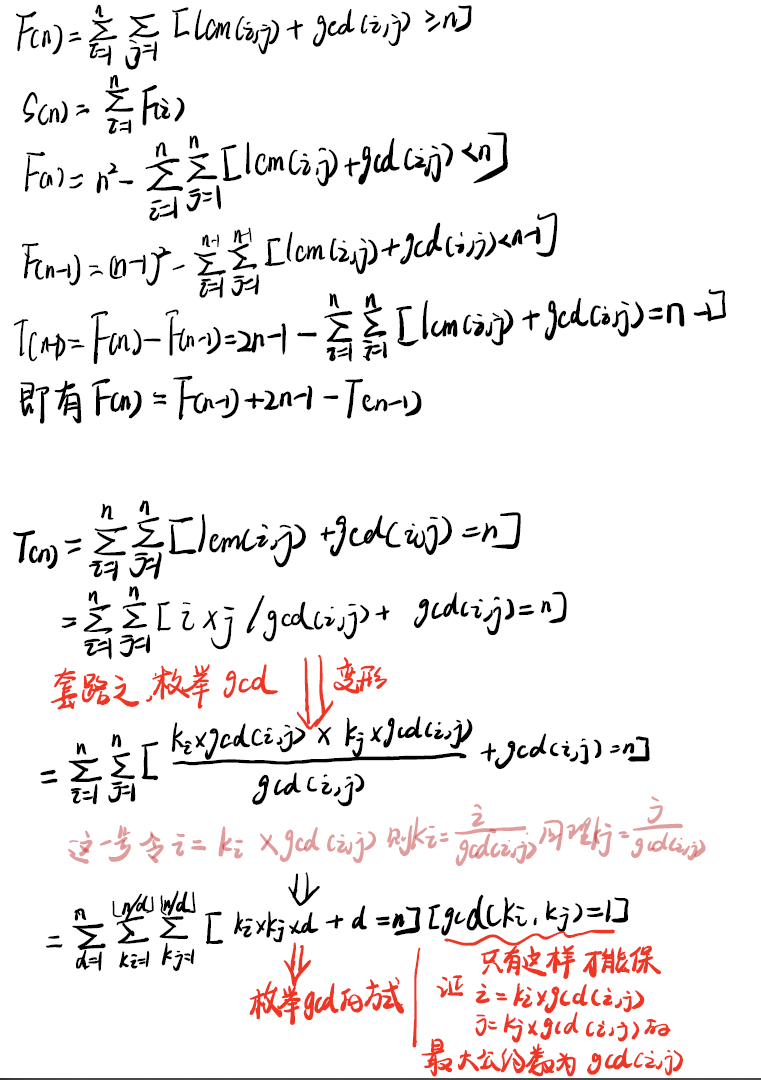 F(n) = \sum_{i=1}^{n} \sum_{j=1} [lcm(i,j) + gcd(i,j) ≥ n]
S(n) = \sum_{i=1}^{n} F(i)
F(n) = n^2 - \sum_{i=1}^{n} \sum_{j=1}^{n} [lcm(i,j) + gcd(i,j) < n]
F(n-1) = (n-1)^2 - \sum_{i=1}^{n-1} \sum_{j=1}^{n-1} [lcm(i,j) + gcd(i,j) < n-1]
T(n-1) = F(n) - F(n-1) = 2n-1 - \sum_{i=1}^{n} \sum_{j=1}^{n} [lcm(i,j) + gcd(i,j) = n-1]
即有 F(n) = F(n-1) + 2n-1 - T(n-1)
T(n) = \sum_{i=1}^{n} \sum_{j=1}^{n} [lcm(i,j) + gcd(i,j) = n]
= \sum_{i=1}^{n} \sum_{j=1}^{n} [i × j / gcd(i,j) + gcd(i,j) = n]
套路之,枚举 gcd ⇓ 变形
= \sum_{i=1}^{n} \sum_{j=1}^{n} [\frac{k_i × gcd(i,j) × k_j × gcd(i,j)}{gcd(i,j)} + gcd(i,j) = n]
这一步令 i = k_i × gcd(i,j) 则 k_i = \frac{i}{gcd(i,j)} 同理 k_j = \frac{j}{gcd(i,j)}
⇓
= \sum_{d=1}^{n} \sum_{k_i=1}^{⌊n/d⌋} \sum_{k_j=1}^{⌊n/d⌋} [k_i × k_j × d + d = n] [gcd(k_i, k_j) = 1]
⇓
枚举gcd的方式
只有这样才能保
证 i = k_i × gcd(i,j)
j = k_j × gcd(i,j) 的
最大公约数为 gcd(i,j)